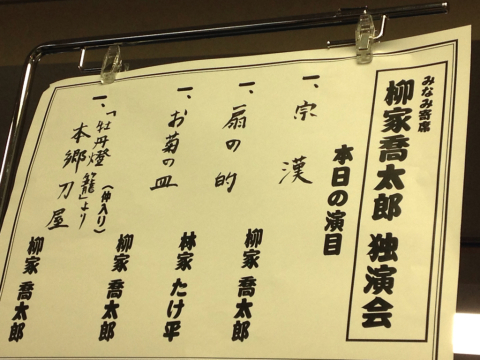 みなみ寄席
柳家喬太郎 独演会
本日の演目
一、宗漢
柳家 喬太郎
一、扇の的
林家 たけ平
一、お菊の皿
柳家 喬太郎
(仲入り)
一、「牡丹燈籠」より
本郷刀屋
柳家 喬太郎